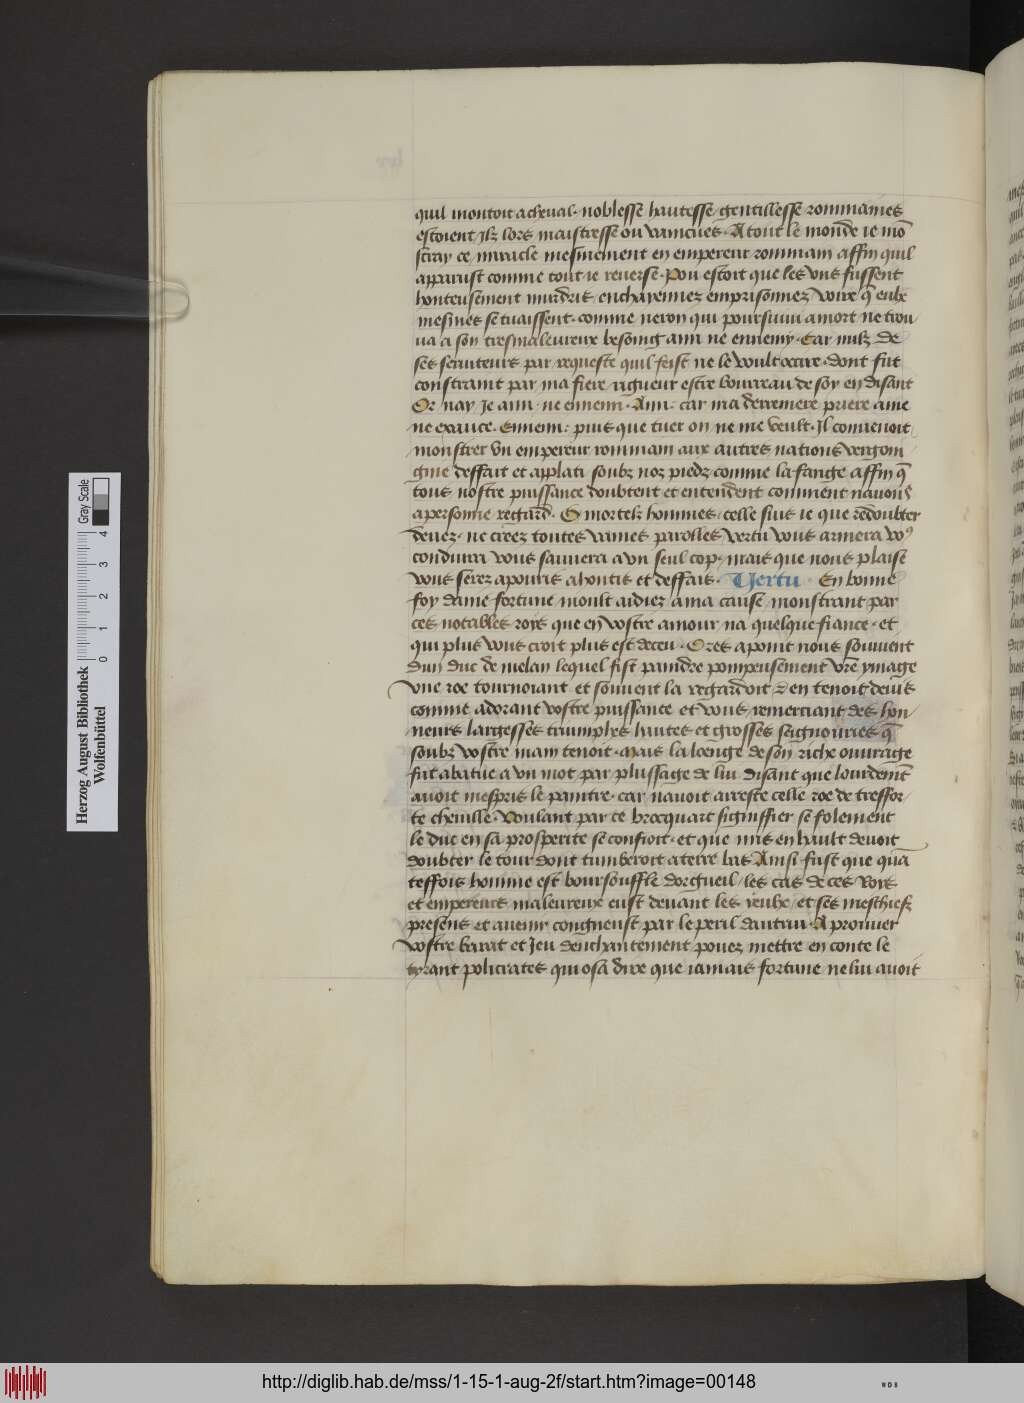 quil montoit acheual · noblesse haultesse / gentillesse rommaines
estoient Ilz lors maistresse ou vaincues · A tout le monde ie mõ
stray ce miracle mesmement en empereur rommain affin quil
apparust comme tout ie reuerse · Pou estoit que les vns fussent
honteusement murdris enchayennez emprisonnez / voire q̃ eulx
mesmes se tuaissent · comme neron qui poursuiui amort ne trou
ua a son tresmaleureux besoing ami ne ennemy · Car nulz de
ses seruiteurs par requeste quil feist ne le voult occire · dont fut
constraint par ma fiere rigueur estre bourreau de soy en disant
Or nay Je ami · ne ennemi · Ami · car ma derreniere priere ame
ne exauce · Ennemi : puis que tuer on ne me veult · Il conuenoit
monstrer vn empereur rommain aux autres nations vergon
gne deffait et applati soubz noz piedz comme la fange affin q̃
tous nostre puissance doubtent et entendent comment nauons
apersonne regard · O mortelz hommes / celle suis ie que redoubter
deuez · ne creez toutes vaines parolles vertu vous armera vo9
conduira vous sauuera a vn seul cop · mais que nous plaise
vous serez apouris ahontis et deffais · Vertu · En bonne
foy dame fortune moult aidiez a ma cause / monstrant par
ces notables roys que en vostre amour na quelque fiance · et
qui plus vous croit plus est deceu · Ores apoint nous souuient
dun duc de melan lequel fist paindre pompeusement vr̃e ymage
vne roe tournoiant et souuent la regardoit / den tenoit deuis
comme adorant vostre puissance et vous remerciant des hon
neurs largesses triumphes haultes et grosses seignouries q̃
soubz vostre main tenoit · Mais la loenge de son riche ouurage
fut abatue a vn mot par plus sage de lui disant que lourdemẽt
auoit mespris le paintre · car nauoit arreste celle roe de tresfor
te cheuille · Voulant par ce brocquart signiffier se folement
le duc en sa prosperite se confioit · et que mis en hault deuoit
doubter le tour dont tumberoit aterre bas Ainsi fust que quã
teffois homme est boursouffle dorgueil / les cas de ces roys
et empereurs maleureux eust deuant les yeulx / et ses meschiefz
presens et auenir congneust par le peril dautrui · A prouuer
vostre barat et Jeu denchantement pouez mettre en conte le
tyrant policrates qui osa dire que iamais fortune ne lui auoit
Herzog August Bibliothek
Wolfenbüttel
0 1 2 3 4
Gray Scale
http://diglib.hab.de/mss/1-15-1-aug-2f/start.htm?image=00148
WDB